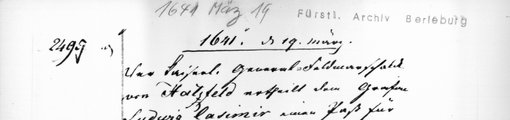 1641 März 19
Fürstl. Archiv Berleburg
1641. d 19. märz.
2495
Der Kaiserl. General-Feldmarschalk
von Hatzfeld ertheilt dem Grafen
Ludwig Casimir einen Paß für